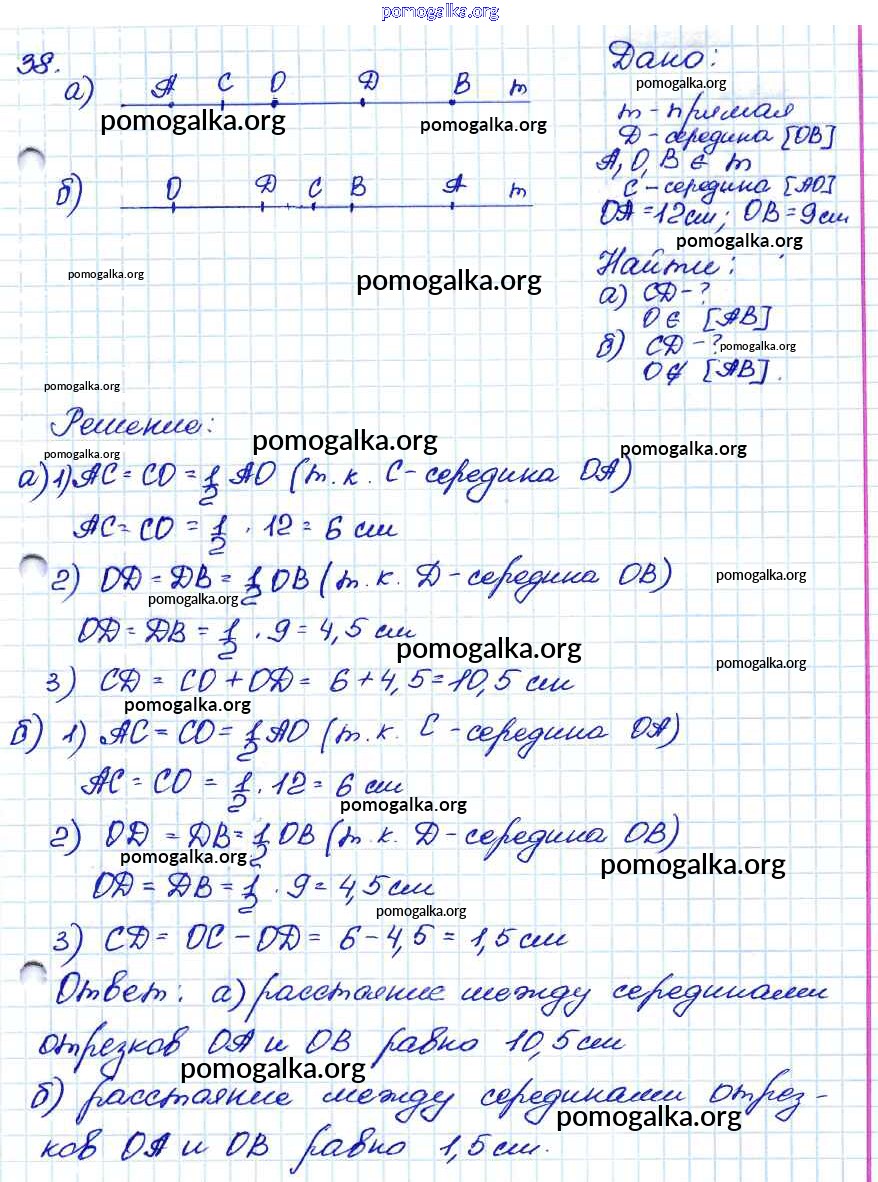 pomogalka.org
38.
а) A C O D B m
pomogalka.org pomogalka.org
б) O D C B A m
pomogalka.org pomogalka.org
Дано:
pomogalka.org
m - прямая
D - середина [OB]
A, O, B ∈ m
C - середина [AO]
OA = 12 см; OB = 9 см
pomogalka.org
Найти:
а) CD - ?
O ∈ [AB]
б) CD - ? pomogalka.org
O ∉ [AB].
pomogalka.org
Решение:
pomogalka.org pomogalka.org pomogalka.org
а) 1) AC = CO = 1/2 AO (т.к. C - середина OA)
AC = CO = 1/2 · 12 = 6 см
2) OD = DB = 1/2 OB (т.к. D - середина OB) pomogalka.org
pomogalka.org
OD = DB = 1/2 · 9 = 4,5 см
pomogalka.org pomogalka.org
3) CD = CO + OD = 6 + 4,5 = 10,5 см
pomogalka.org
б) 1) AC = CO = 1/2 AO (т.к. C - середина OA)
AC = CO = 1/2 · 12 = 6 см
pomogalka.org
2) OD = DB = 1/2 OB (т.к. D - середина OB)
pomogalka.org pomogalka.org
OD = DB = 1/2 · 9 = 4,5 см
pomogalka.org
3) CD = OC - OD = 6 - 4,5 = 1,5 см
Ответ: а) расстояние между серединами
отрезков OA и OB равно 10,5 см
pomogalka.org
б) расстояние между серединами отрез-
pomogalka.org
ков OA и OB равно 1,5 см.